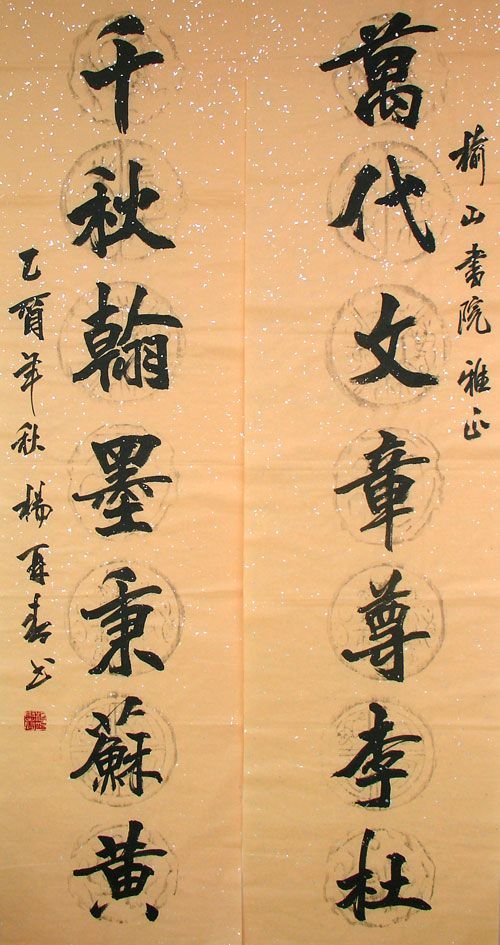 榆山書院雅正
萬代文章尊李杜
千秋翰墨秉蘇黄
乙酉年秋楊再春书